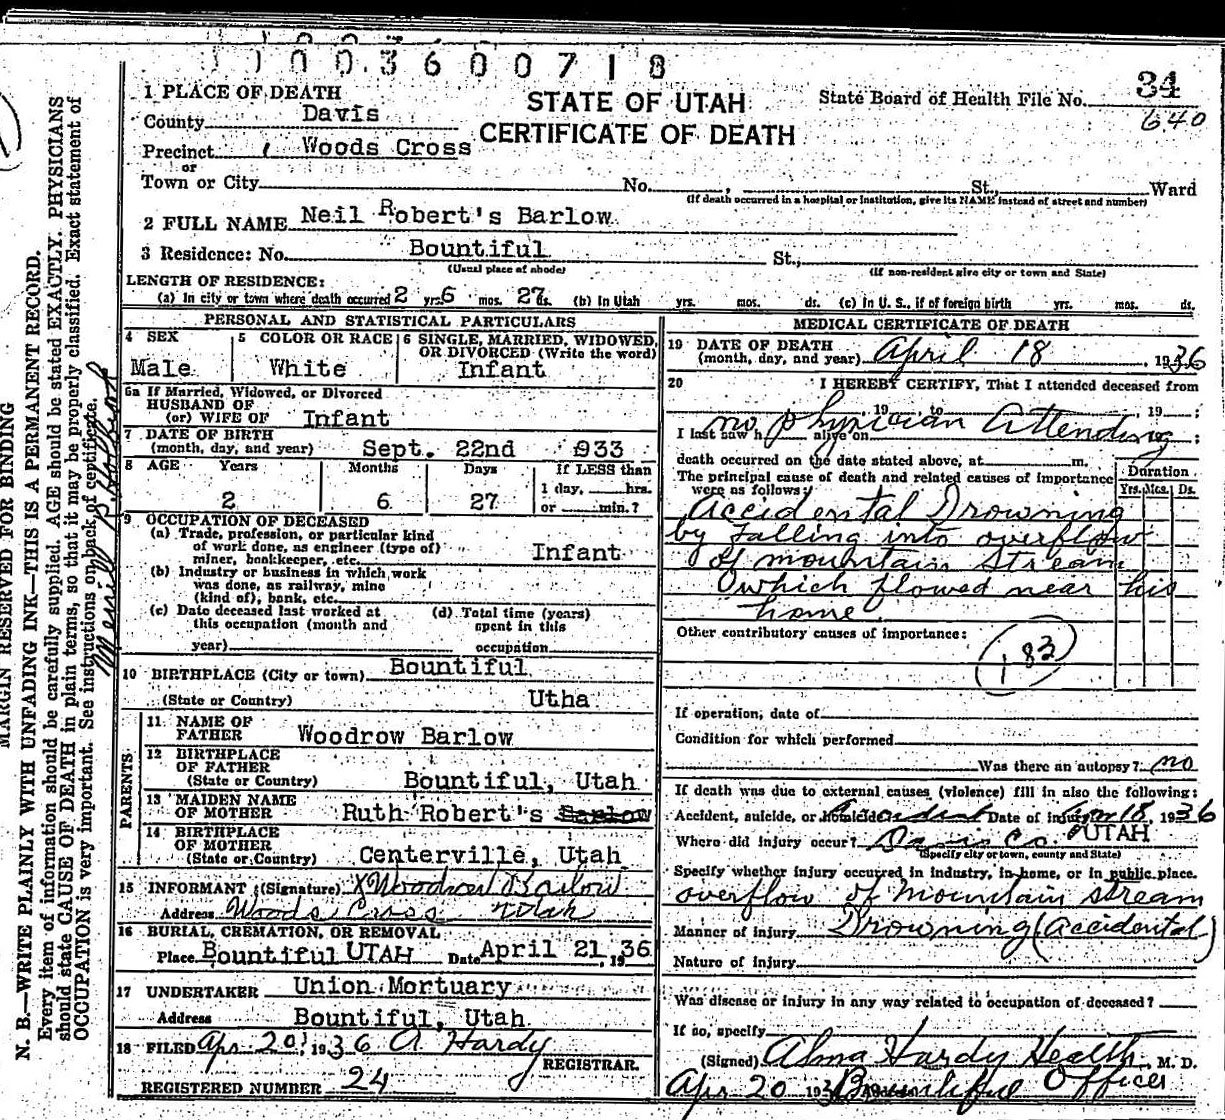 1 1 0 0 3 6 0 0 7 1 8
34
640
STATE OF UTAH
CERTIFICATE OF DEATH
State Board of Health File No.
1 PLACE OF DEATH
County Davis
Precinct Woods Cross
or
Town or City No. , St., Ward
(If death occurred in a hospital or institution, give its NAME instead of street and number)
2 FULL NAME Neil Robert's Barlow
3 Residence: No. Bountiful St.,
(Usual place of abode) (If non-resident give city or town and State)
LENGTH OF RESIDENCE:
(a) In city or town where death occurred 2 yrs. 6 mos. 27 ds. (b) In Utah yrs. mos. ds. (c) In U. S., if of foreign birth yrs. mos. ds.
PERSONAL AND STATISTICAL PARTICULARS
4 SEX 5 COLOR OR RACE 6 SINGLE, MARRIED, WIDOWED, OR DIVORCED (Write the word)
Male White Infant
6a If Married, Widowed, or Divorced
HUSBAND OF
(or) WIFE OF Infant
7 DATE OF BIRTH
(month, day, and year) Sept. 22nd 933
8 AGE Years Months Days If LESS than
1 day, hrs.
2 6 27 or min.?
9 OCCUPATION OF DECEASED
(a) Trade, profession, or particular kind
of work done, as engineer (type of)
miner, bookkeeper, etc. Infant
(b) Industry or business in which work
was done, as railway, mine
(kind of), bank, etc.
(c) Date deceased last worked at (d) Total time (years)
this occupation (month and spent in this
year) occupation
10 BIRTHPLACE (City or town) Bountiful
(State or Country) Utha
PARENTS
11 NAME OF
FATHER Woodrow Barlow
12 BIRTHPLACE
OF FATHER
(State or Country) Bountiful, Utah
13 MAIDEN NAME
OF MOTHER Ruth Robert's Barlow
14 BIRTHPLACE
OF MOTHER
(State or Country) Centerville, Utah
15 INFORMANT (Signature) x Woodrow Barlow
Address Woods Cross Utah
16 BURIAL, CREMATION, OR REMOVAL
Place Bountiful UTAH Date April 21, 1936
17 UNDERTAKER Union Mortuary
Address Bountiful, Utah
18 FILED Apr 20, 1936 A Hardy
REGISTRAR.
REGISTERED NUMBER 24
MEDICAL CERTIFICATE OF DEATH
19 DATE OF DEATH
(month, day, and year) April 18, 1936
20 I HEREBY CERTIFY, That I attended deceased from
, 19 to , 19 ;
no physician Attending
I last saw h alive on ;
death occurred on the date stated above, at m.
The principal cause of death and related causes of importance
were as follows:
Duration
Yrs. Mos. Ds.
Accidental Drowning
by Falling into overflow
of mountain stream
which flowed near his
home.
Other contributory causes of importance:
183
If operation, date of
Condition for which performed
Was there an autopsy? no
If death was due to external causes (violence) fill in also the following:
Accident, suicide, or homicide Accident Date of injury Apr 18, 1936
Where did injury occur? Davis Co. UTAH
(Specify city or town, county and State)
Specify whether injury occurred in industry, in home, or in public place.
overflow of mountain stream
Manner of injury Drowning (accidental)
Nature of injury
Was disease or injury in any way related to occupation of deceased?
If so, specify
(Signed) Alma Hardy Health, M. D.
Apr 20 1936 Bountiful Officer
MARGIN RESERVED FOR BINDING
N. B.—WRITE PLAINLY WITH UNFADING INK—THIS IS A PERMANENT RECORD.
Every item of information should be carefully supplied. AGE should be stated EXACTLY. PHYSICIANS
should state CAUSE OF DEATH in plain terms, so that it may be properly classified. Exact statement of
OCCUPATION is very important. See instructions on back of certificate.